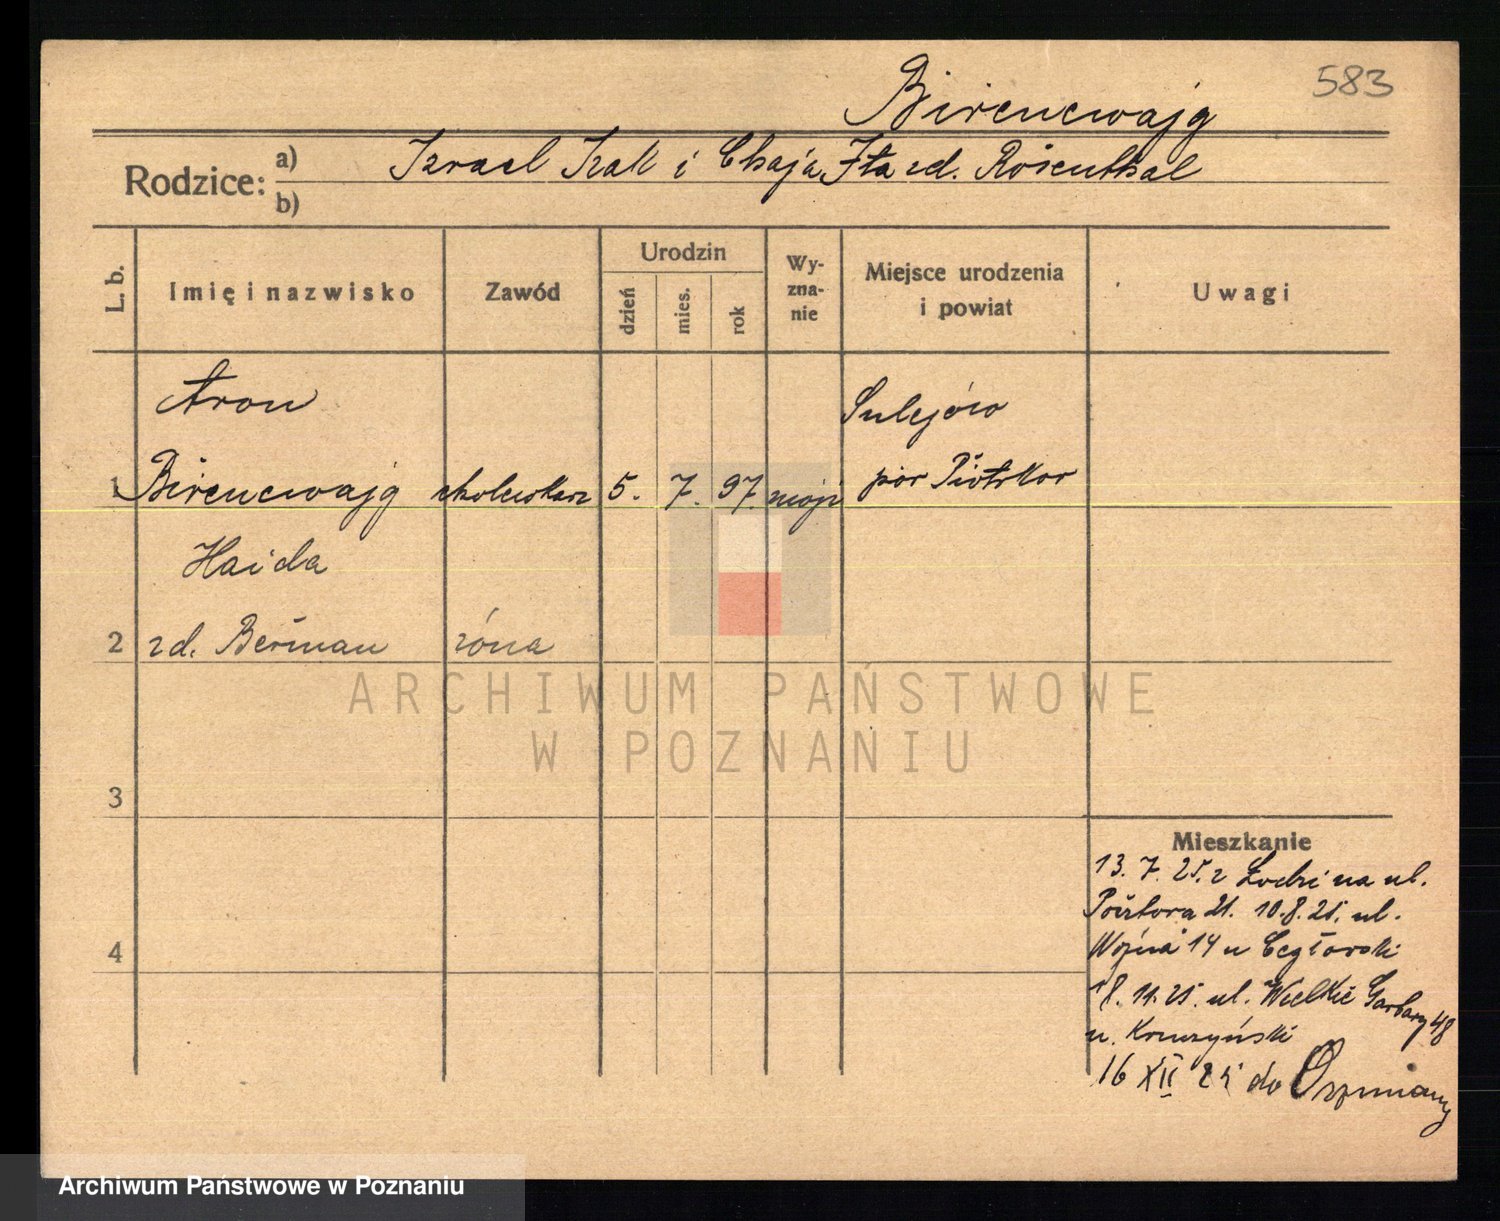 583
Birencwajg
Rodzice: a) Izrael Izak i Chaja Ita zd. Rosenthal
b)
L. b.
Imię i nazwisko
Zawód
Urodzin
dzień
mies.
rok
Wy-
zna-
nie
Miejsce urodzenia
i powiat
Uwagi
Aron
Sulejów
1 Birencwajg cholewkarz 5. 7. 97. mojż pow Piotrkow
Haida
2 zd. Berman żona
3
4
Mieszkanie
13. 7. 25. z Łodzi na ul.
21. 10.8.25. ul.
Woźna 14 u Cegłowski
18. 11. 25. ul. Wielkie Garbary 48
u. Kruszyński
16 XII 25 do Oszmiany
ARCHIWUM PAŃSTWOWE
W POZNANIU
Archiwum Państwowe w Poznaniu